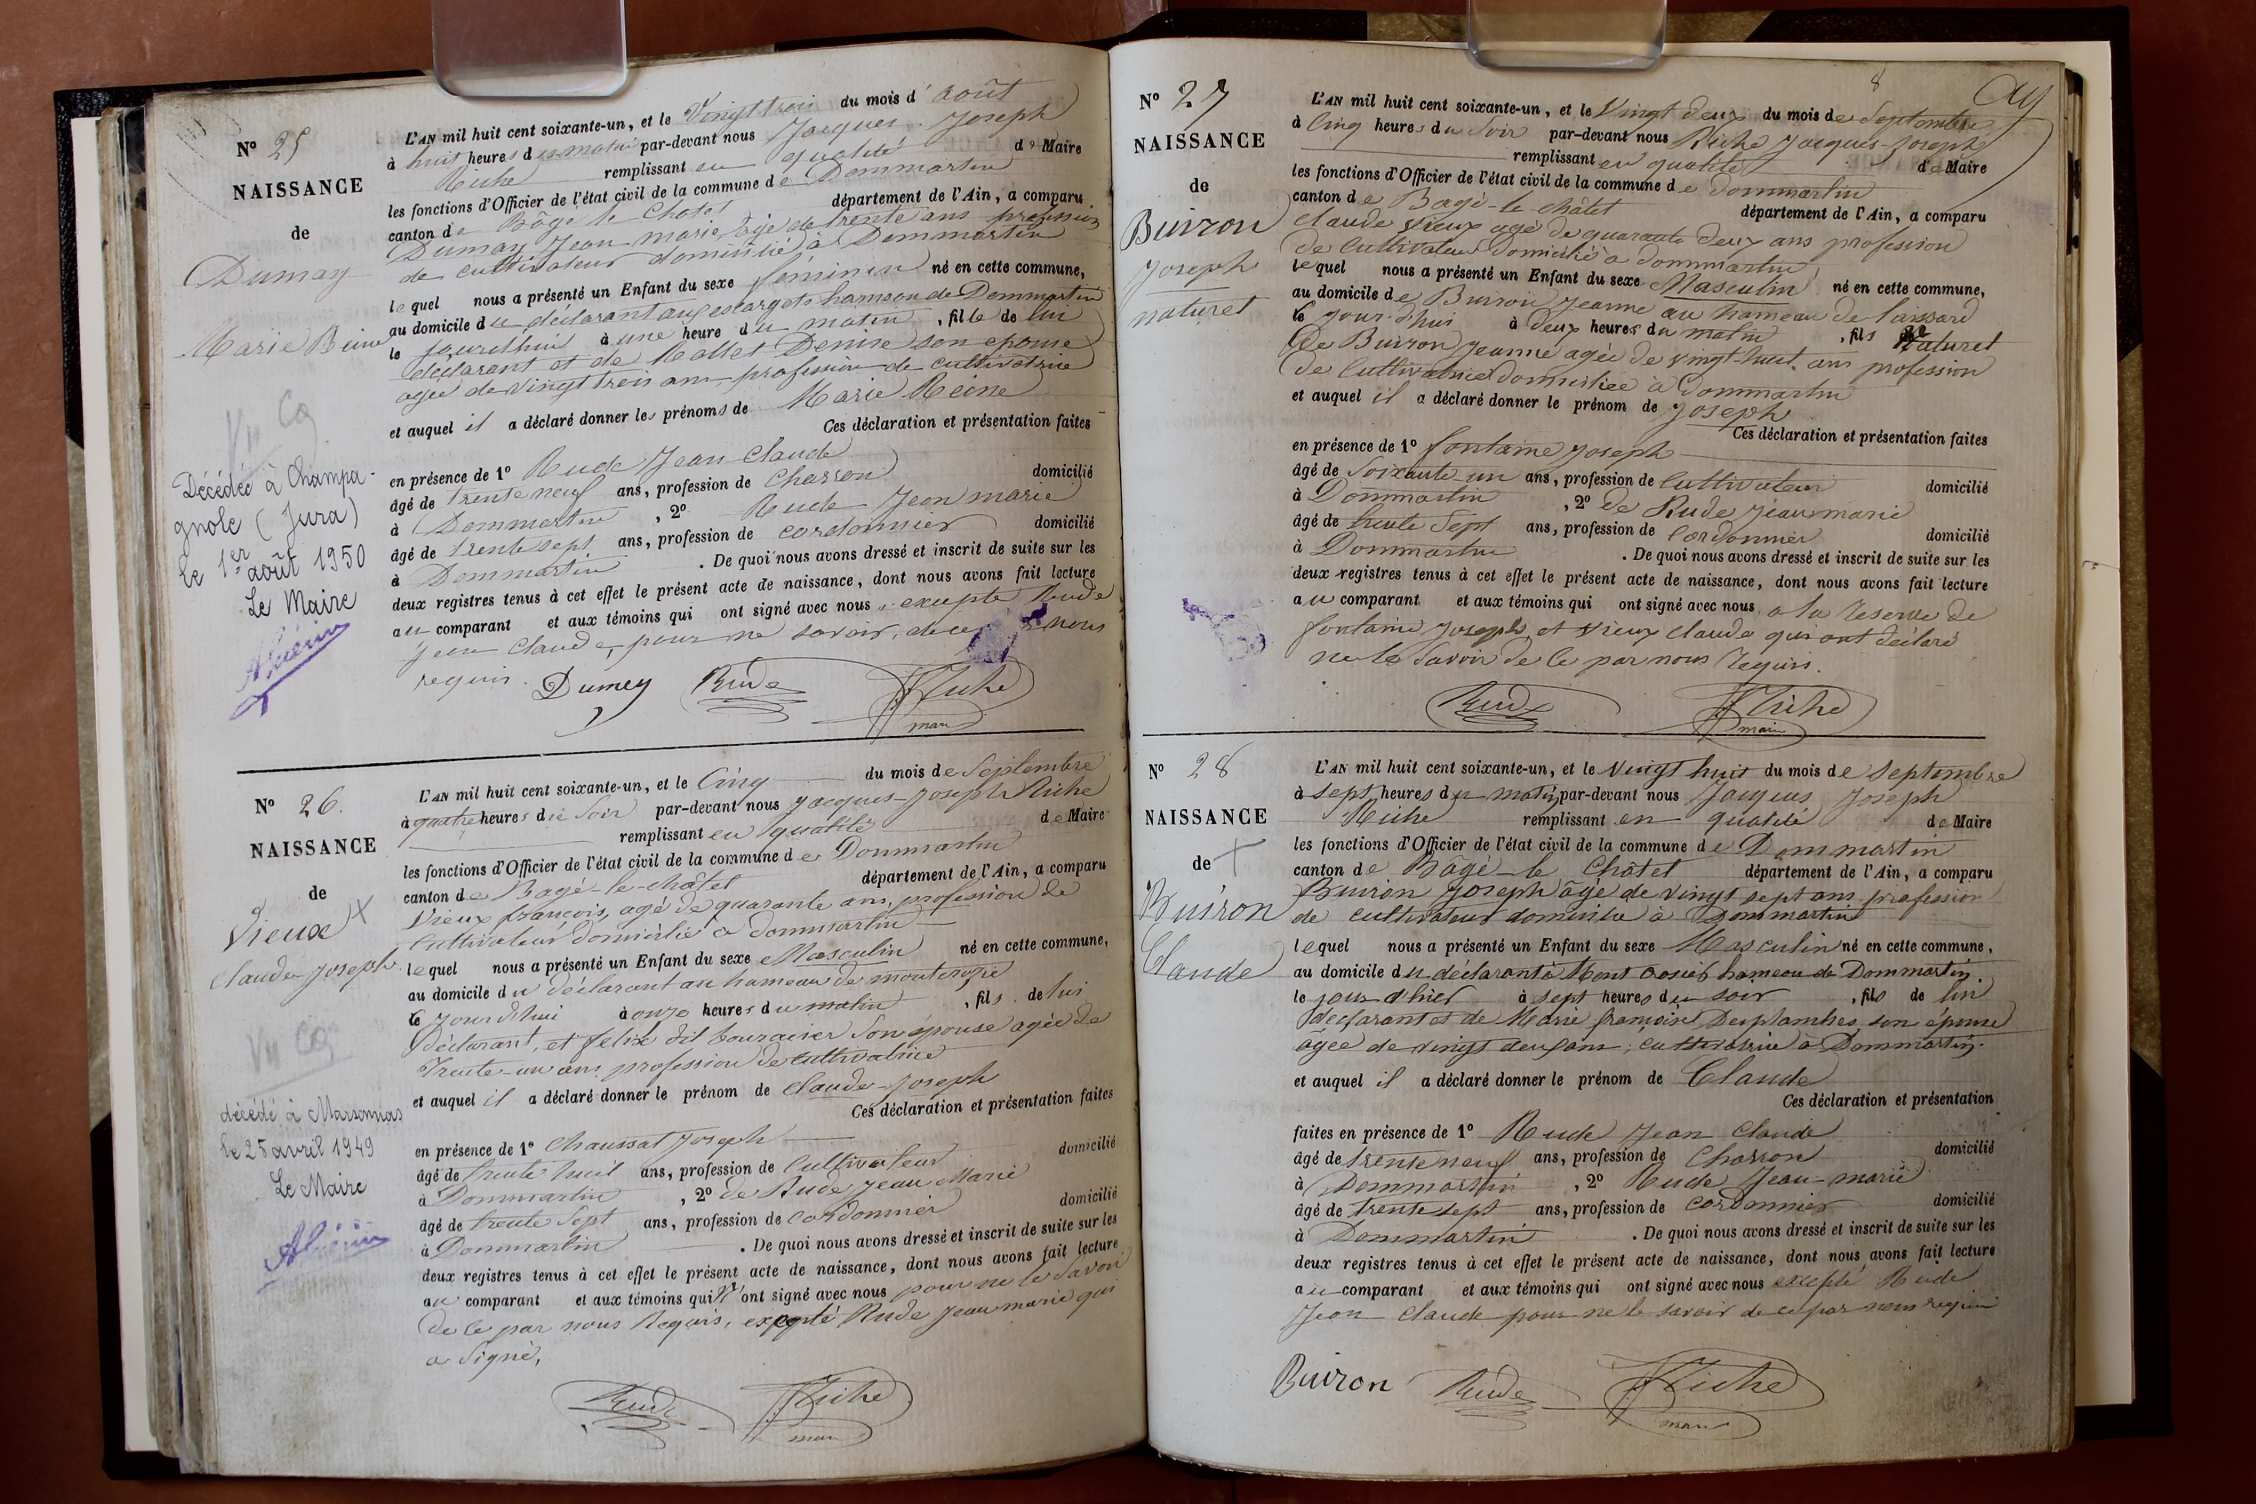 N° 25
NAISSANCE
de
Dumay
Marie Reine
Vu
Décédée à Champa-
gnole (Jura)
le 1er août 1950
Le Maire
L'AN mil huit cent soixante-un, et le Vingt trois du mois d'août
à huit heures du matin par-devant nous Jacques Joseph
Riche remplissant en qualité de Maire
les fonctions d'Officier de l'état civil de la commune de Dommartin
canton de Bâgé le Chatel département de l'Ain, a comparu
Dumay Jean marie, âgé de trente ans profession
de cultivateur domicilié à Dommartin
lequel nous a présenté un Enfant du sexe féminin né en cette commune,
au domicile du déclarant aux escargots hameau de Dommartin
le jourd'hui à une heure du matin, fille de lui
déclarant et de Mallet Denise son épouse
agée de vingt trois ans, profession de cultivatrice
et auquel il a déclaré donner les prénoms de Marie Reine
Ces déclaration et présentation faites
en présence de 1° Rude Jean Claude
âgé de trente neuf ans, profession de Charron domicilié
à Dommartin, 2° Rude Jean marie
âgé de trente sept ans, profession de cordonnier domicilié
à Dommartin. De quoi nous avons dressé et inscrit de suite sur les
deux registres tenus à cet effet le présent acte de naissance, dont nous avons fait lecture
au comparant et aux témoins qui ont signé avec nous, excepté Rude
Jean Claude, pour ne savoir, de ce nous
requis.
Dumey Rude Riche
maire
N° 26.
NAISSANCE
de
Vieux
Claude-Joseph
Vu
décédé à Marsonnas
le 25 avril 1949
Le Maire
L'AN mil huit cent soixante-un, et le Cinq du mois de Septembre
à quatre heures du soir par-devant nous Jacques-Joseph Riche
remplissant en qualité de Maire
les fonctions d'Officier de l'état civil de la commune de Dommartin
canton de Bagé-le-châtel département de l'Ain, a comparu
Vieux françois, agé de quarante ans, profession de
Cultivateur domicilié à dommartin
lequel nous a présenté un Enfant du sexe Masculin né en cette commune,
au domicile du déclarant au hameau de
le jourd'hui à onze heures du matin, fils de lui
déclarant, et felix dit son épouse agée de
Trente-un ans profession de cultivatrice
et auquel il a déclaré donner le prénom de Claude-Joseph
Ces déclaration et présentation faites
en présence de 1° Chaussat Joseph
âgé de trente huit ans, profession de Cultivateur domicilié
à Dommartin, 2° de Rude Jean Marie
âgé de trente sept ans, profession de Cordonnier domicilié
à Dommartin. De quoi nous avons dressé et inscrit de suite sur les
deux registres tenus à cet effet le présent acte de naissance, dont nous avons fait lecture
au comparant et aux témoins qui n'ont signé avec nous pour ne le savoir
de ce par nous Requis, excepté Rude Jean marie qui
a Signé,
Rude Riche
maire
8
N° 27
NAISSANCE
de
Buiron
Joseph
naturel
L'AN mil huit cent soixante-un, et le Vingt deux du mois de Septembre
à Cinq heures du Soir par-devant nous Riche Jacques-Joseph
remplissant en qualité de Maire
les fonctions d'Officier de l'état civil de la commune de Dommartin
canton de Bagé-le-châtel département de l'Ain, a comparu
Claude Vieux agé de quarante deux ans profession
de Cultivateur domicilié à dommartin
lequel nous a présenté un Enfant du sexe Masculin né en cette commune,
au domicile de Buiron Jeanne au hameau de
le jour d'hui à deux heures du matin, fils naturel
De Buiron Jeanne agée de vingt-huit ans profession
de Cultivatrice domiciliée à Dommartin
et auquel il a déclaré donner le prénom de Joseph
Ces déclaration et présentation faites
en présence de 1° fontaine Joseph
âgé de Soixante un ans, profession de Cultivateur domicilié
à Dommartin, 2° de Rude Jean marie
âgé de trente Sept ans, profession de Cordonnier domicilié
à Dommartin. De quoi nous avons dressé et inscrit de suite sur les
deux registres tenus à cet effet le présent acte de naissance, dont nous avons fait lecture
au comparant et aux témoins qui ont signé avec nous, a la reserve de
fontaine Joseph et Vieux Claude qui ont déclaré
ne le Savoir de ce par nous Requis.
Rude Riche
maire
N° 28
NAISSANCE
de
Buiron
Claude
L'AN mil huit cent soixante-un, et le vingt huit du mois de septembre
à sept heures du matin par-devant nous Jacques Joseph
Riche remplissant en qualité de Maire
les fonctions d'Officier de l'état civil de la commune de Dommartin
canton de Bâgé-le Châtel département de l'Ain, a comparu
Buiron Joseph âgé de vingt sept ans profession
de cultivateur domicilié à Dommartin
lequel nous a présenté un Enfant du sexe Masculin né en cette commune,
au domicile du déclarant à Mont hameau de Dommartin.
le jour d'hier à sept heures du soir, fils de lui
déclarant et de Marie françoise Desplanches son épouse
âgée de vingt deux ans, cultivatrice à Dommartin.
et auquel il a déclaré donner le prénom de Claude
Ces déclaration et présentation
faites en présence de 1° Rude Jean Claude
âgé de trente neuf ans, profession de Charron domicilié
à Dommartin, 2° Rude Jean-marie
âgé de trente sept ans, profession de cordonnier domicilié
à Dommartin. De quoi nous avons dressé et inscrit de suite sur les
deux registres tenus à cet effet le présent acte de naissance, dont nous avons fait lecture
au comparant et aux témoins qui ont signé avec nous excepté Rude
Jean Claude pour ne le savoir de ce par nous requis
Buiron Rude Riche
maire